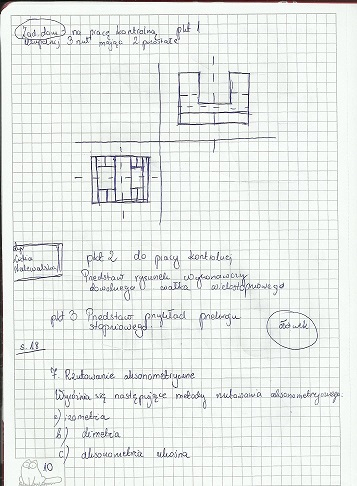 Zad. dom. na pracę kontrolną pkt 1
Uzupełnij 3 rzut mając 2 pozostałe
Lidia
pkt 2 do pracy kontrolnej
Przedstaw rysunek wykonawczy
dowolnego wałka wielostopniowego
pkt 3 Przedstaw przykład przekroju
stopniowego.
ołówek
s. 18
7. Rzutowanie aksonometryczne
Wyróżnia się następujące metody rzutowania aksonometrycznego:
a) izometria
b) dimetria
c) aksonometria ukośna
10